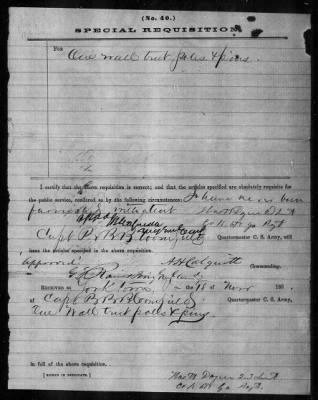 (No. 40.)
SPECIAL REQUISITION.
For
One wall tent poles & pins.
I certify that the above requisition is correct; and that the articles specified are absolutely requisite for
the public service, rendered so by the following circumstances: I have never been
furnished with a tent
Co. N
Capt B. B. Bloomfield Quartermaster C. S. Army, will
issue the articles specified in the above requisition.
Approved A H Colquitt Commanding.
Received at York Town, the 18 of Novr 186
of Capt B. B. Bloomfield Quartermaster C. S. Army,
One Wall tent polls & pins
in full of the above requisition.
[SIGNED IN DUPLICATE.]
Thos W Dozier 2nd Lieut
Co N Ga Regt.